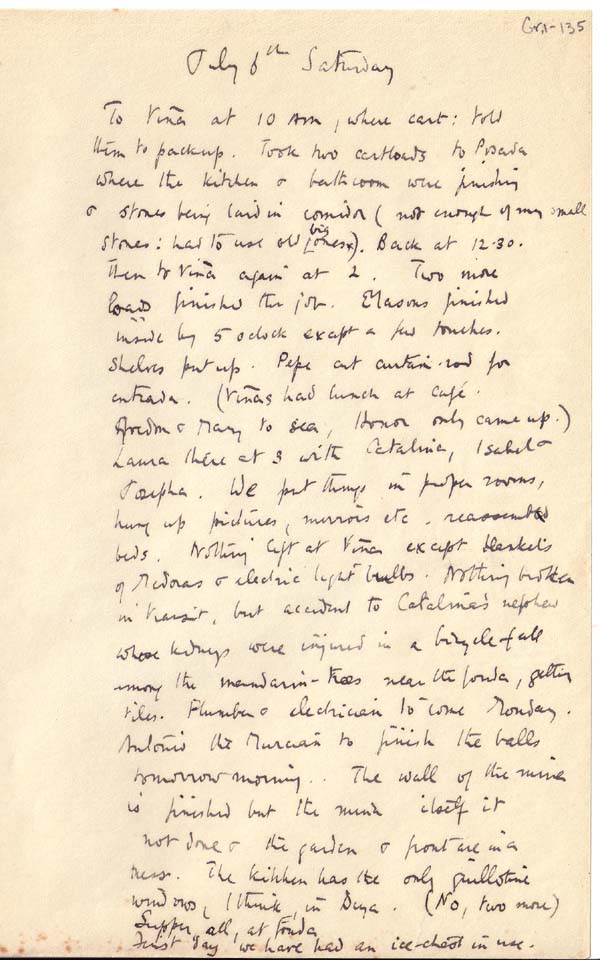 Gr.1-135
July 6th Saturday
To Viña at 10 AM, where cart: told
them to pack up. Took two cartloads to Posada
where the kitchen & bathroom were finishing
& stones being laid in corridor (not enough of my small
stones: had to use old big ones). Back at 12.30.
then to Viña again at 2. Two more
loads finished the job. Masons finished
inside by 5 oclock except a few touches.
Shelves put up. Pepe cut curtain-rod for
entrada. (Viñas had lunch at café.
& Mary to sea, Honor only came up.)
Laura there at 3 with Catalina, Isabel &
Josepha. We put things in proper rooms,
hung up pictures, mirrors etc. reassembled
beds. Nothing left at Viña except blankets
of Medoras & electric light bulbs. Nothing broken
in transit, but accident to Catalina's nephew
whose kidneys were injured in a bicycle-fall
among the mandarin-trees near the fonda, getting
tiles. Plumber & electrician to come Monday.
António the Murcian to finish the
tomorrow morning.. The wall of the mina
is finished but the mina itself it
not done & the garden & front are in a
mess. The kitchen has the only guillotine
windows, I think, in Deya. (No, two more)
Supper, all, at fonda
First day we have had an ice-chest in use.